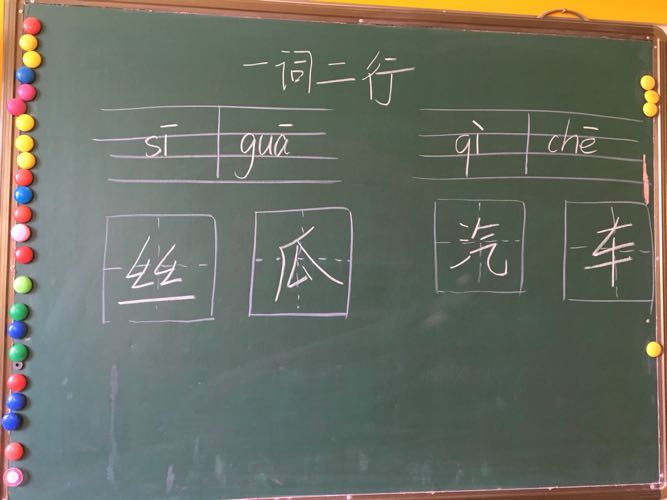 一词二行
sī guā qì chē
丝 瓜 汽 车